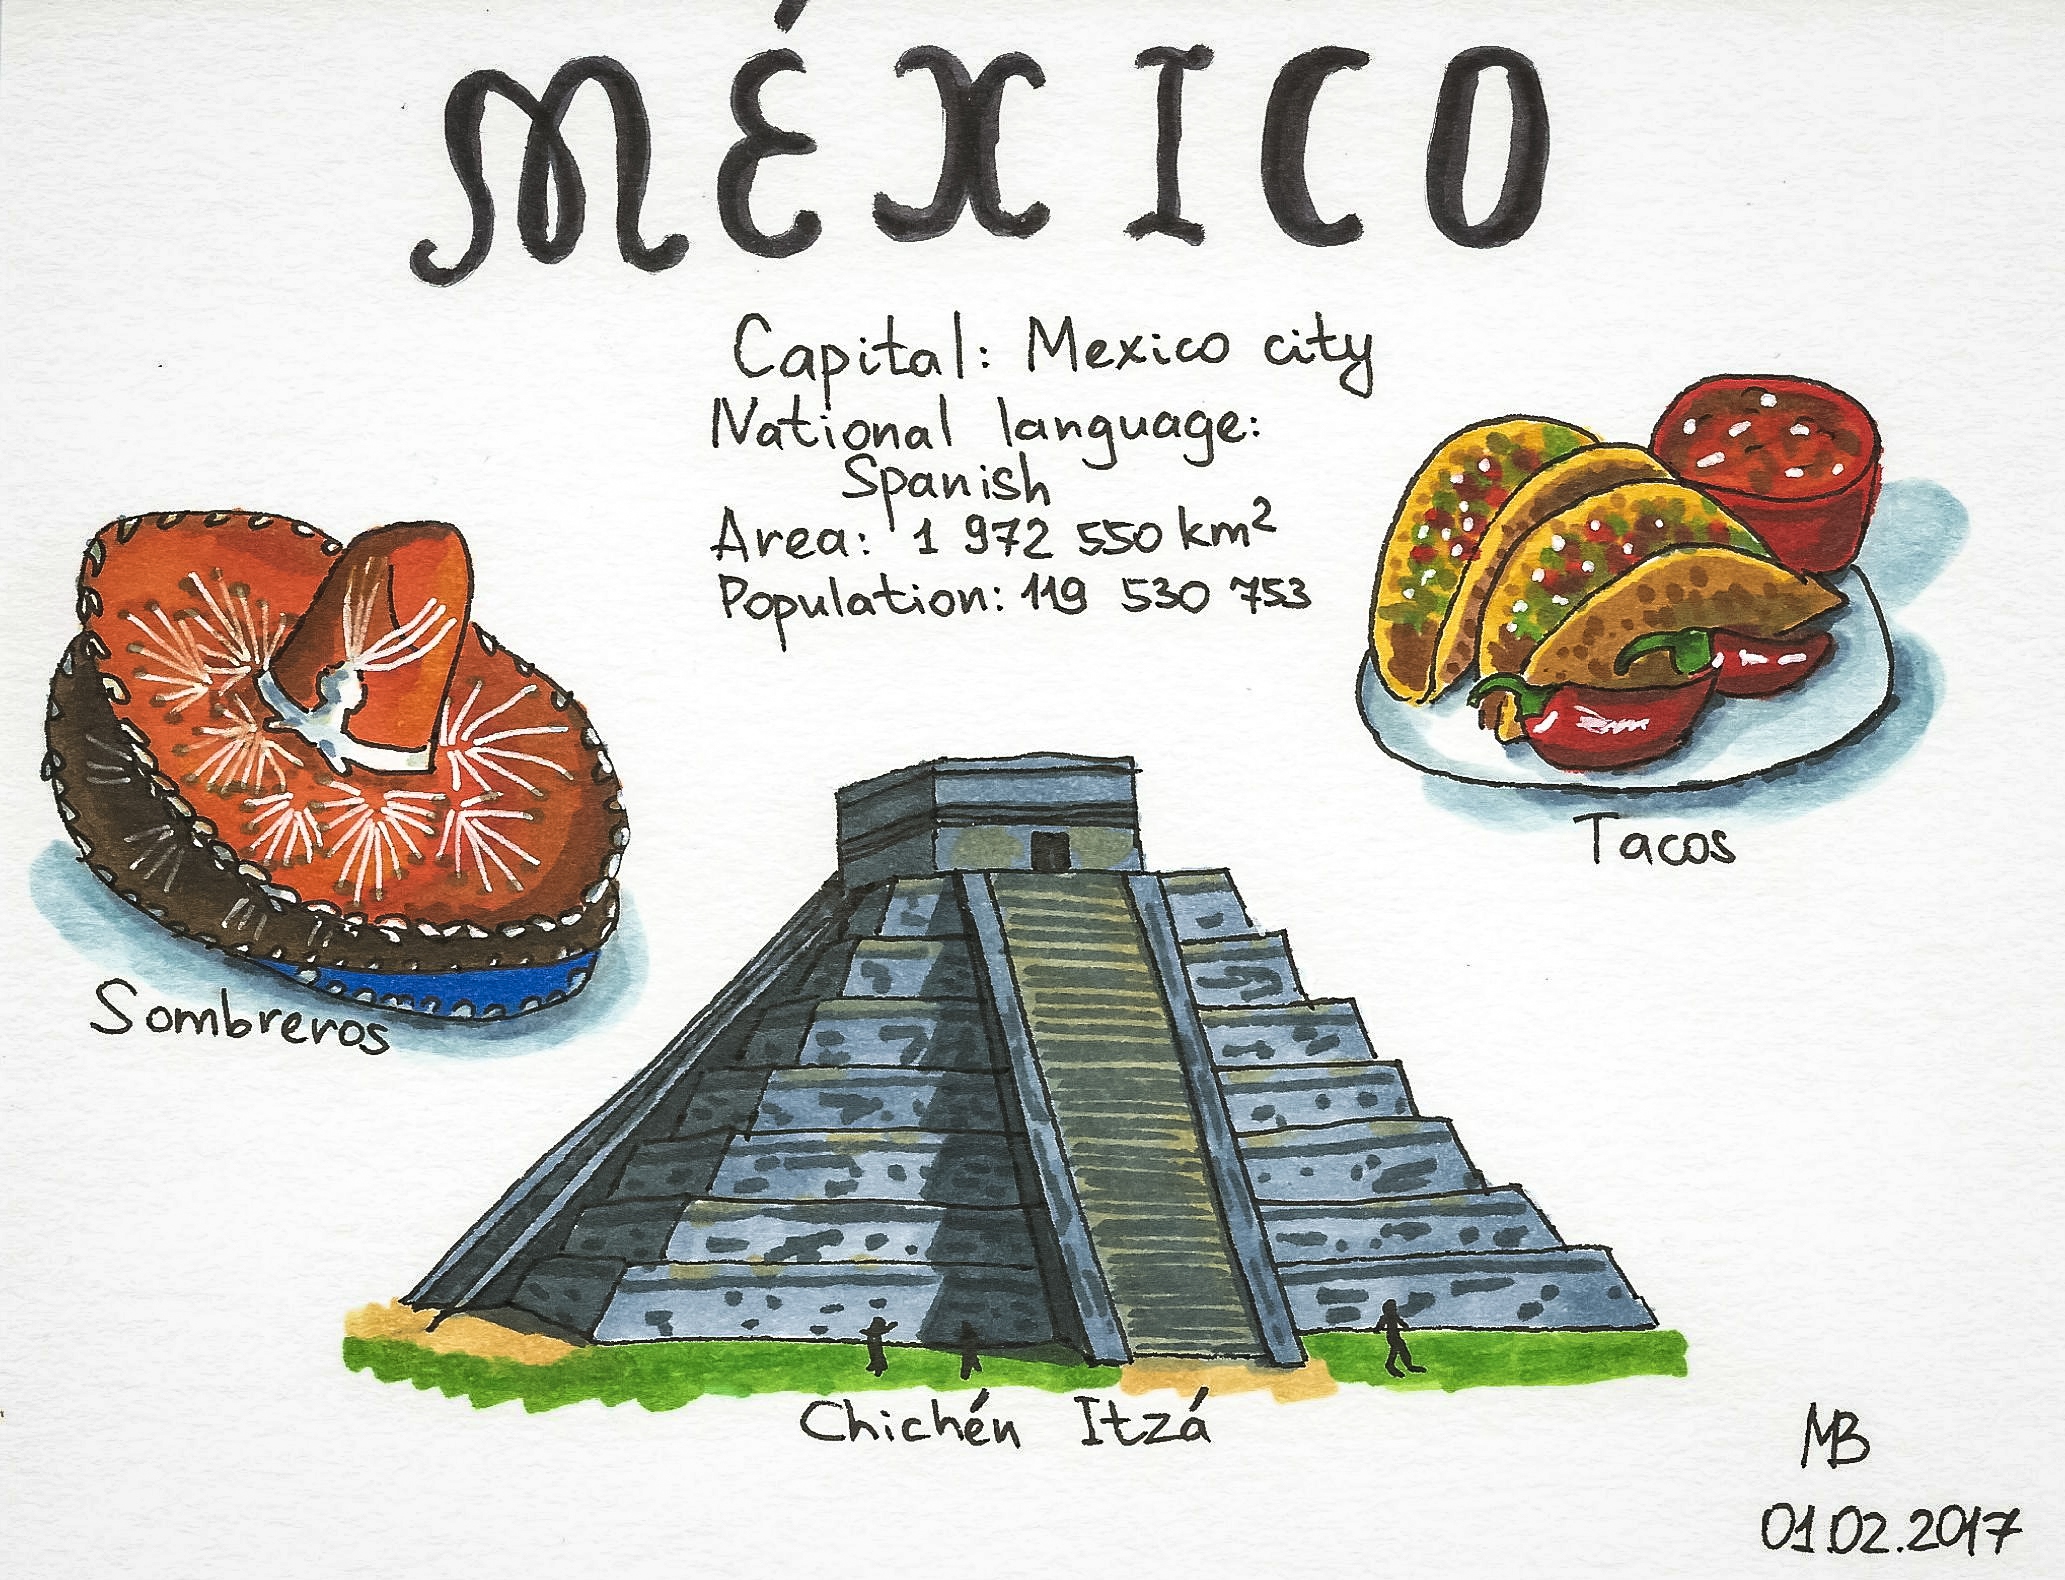 MÉXICO
Capital: Mexico city
National language:
Spanish
Area: 1 972 550 km²
Population: 119 530 753
Tacos
Sombreros
Chichén Itzá
MB
01.02.2017